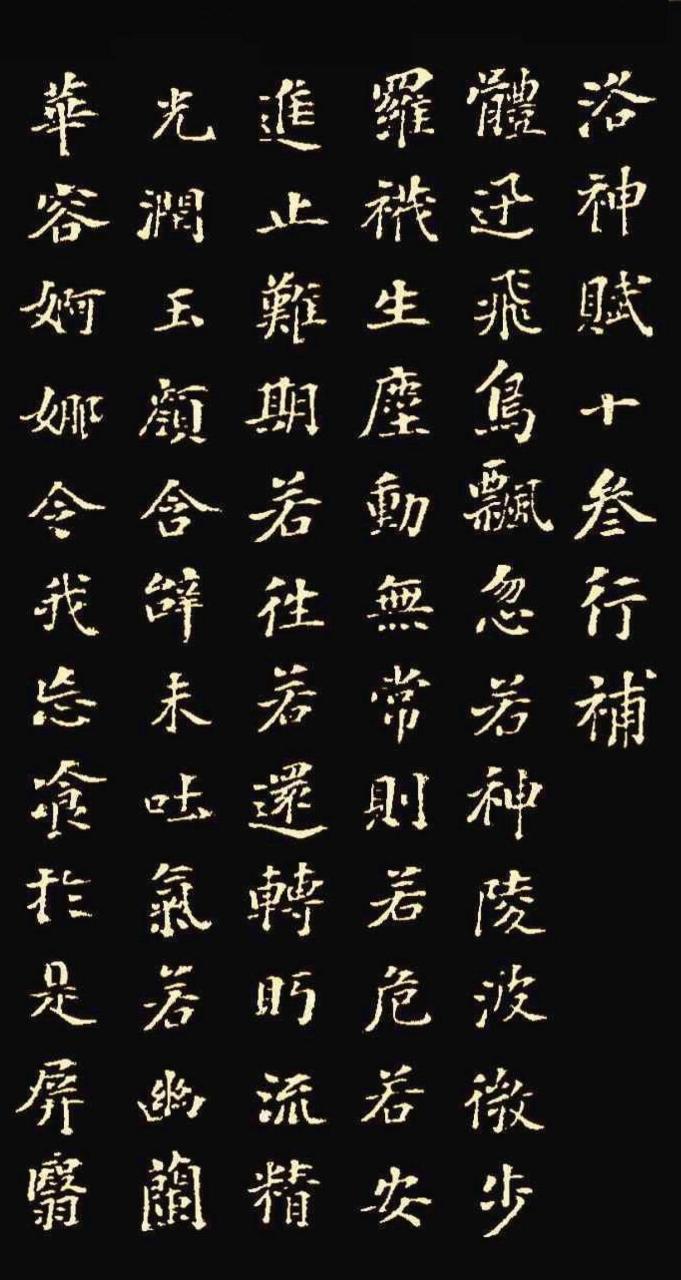 洛神賦十叁行補
體迅飛鳧飄忽若神陵波微步
羅襪生塵動無常則若危若安
進止難期若往若還轉眄流精
光潤玉顏含辭未吐氣若幽蘭
華容婀娜令我忘飡於是屏翳